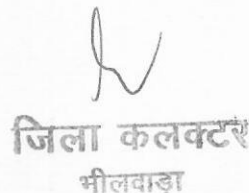 जिला कलक्टर
भीलवाड़ा